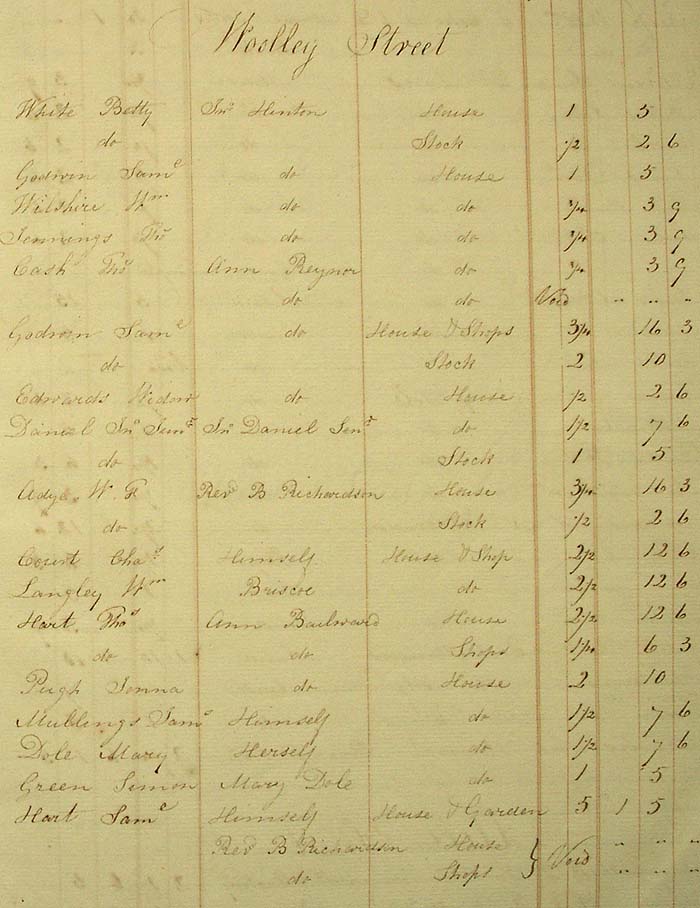 Woolley Street
White Betty Jnᵒ Hinton House 1 5
do Stock 1/2 2 6
Godwin Samˡ do House 1 5
Wilshire Wᵐ do do 3/4 3 9
Jennings Thoˢ do do 3/4 3 9
Cash Thoˢ Ann Reynor do 3/4 3 9
do do Void " " "
Godwin Samˡ do House & Shops 3 1/4 16 3
do Stock 2 10
Edwards Widow do House 1/2 2 6
Daniel Jnᵒ Junʳ Jnᵒ Daniel Senʳ do 1 1/2 7 6
do Stock 1 5
Adye W F Revᵈ B Richardson House 3 1/4 16 3
do Stock 1/2 2 6
Chaˢ Himself House & Shop 2 1/2 12 6
Langley Wᵐ Briscoe do 2 1/2 12 6
Hart Thoˢ Ann Bailward House 2 1/2 12 6
do do Shops 1 1/4 6 3
Pugh do House 2 10
Mullings Samˡ Himself do 1 1/2 7 6
Dole Mary Herself do 1 1/2 7 6
Green Simon Mary Dole do 1 5
Hart Samˡ Himself House & Garden 5 1 5
Revᵈ B Richardson House } Void " " "
do Shops " " "